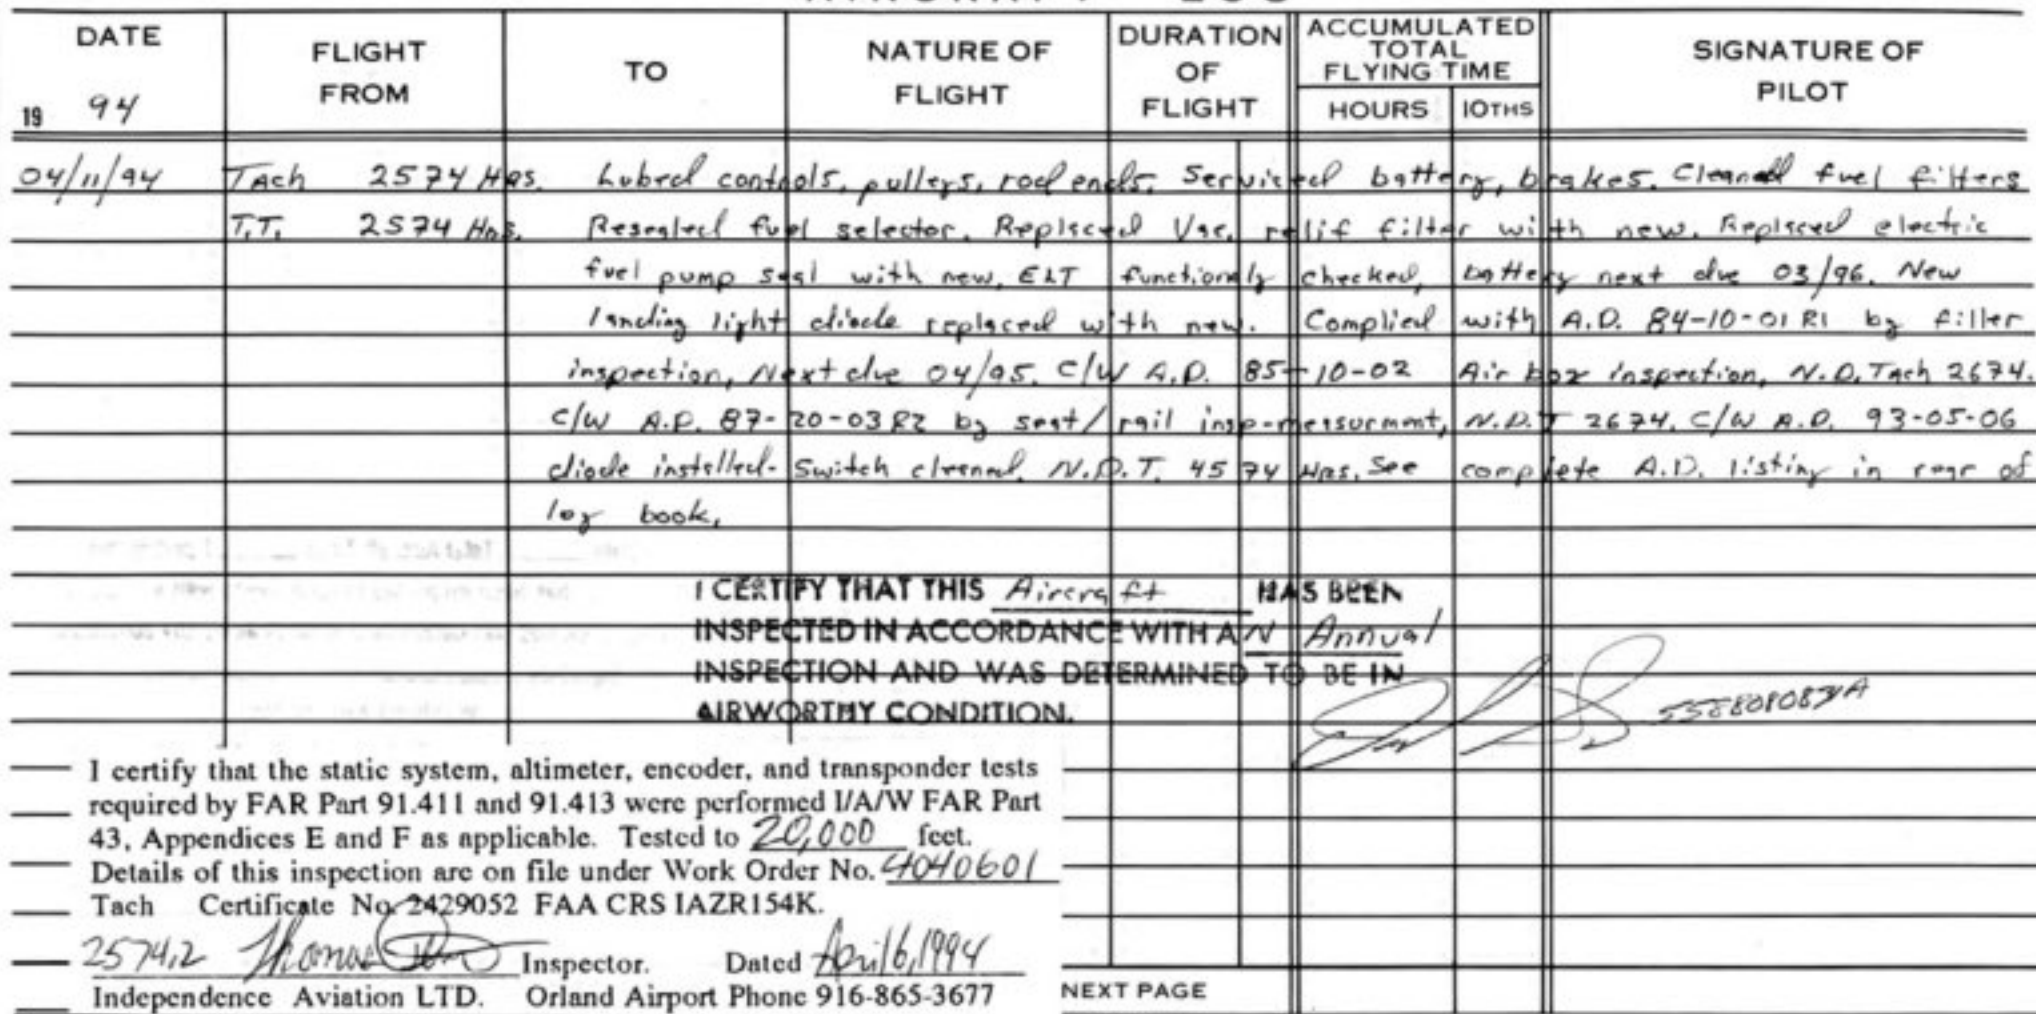 DATE
19 94
FLIGHT FROM
TO
NATURE OF FLIGHT
DURATION OF FLIGHT
ACCUMULATED TOTAL FLYING TIME
HOURS 10THS
SIGNATURE OF PILOT
04/11/94 Tach 2574 Hrs. Lubed controls, pulleys, rod ends. Serviced battery, brakes. Cleaned fuel filters
T.T. 2574 Hrs. Resealed fuel selector. Replaced Vac. relif filter with new. Replaced electric
fuel pump seal with new. ELT functionaly checked, battery next due 03/96. New
landing light diode replaced with new. Complied with A.D. 84-10-01 R1 by filler
inspection, Next due 04/95. C/W A.D. 85-10-02 Air box inspection, N.D. Tach 2674.
C/W A.D. 87-20-03 R2 by seat/rail insp-mersurment, N.D.T 2674. C/W A.D. 93-05-06
diode installed- Switch cleaned. N.D.T. 4574 Hrs. See complete A.D. listing in rear of
log book.
I CERTIFY THAT THIS Aircraft HAS BEEN
INSPECTED IN ACCORDANCE WITH AN Annual
INSPECTION AND WAS DETERMINED TO BE IN
AIRWORTHY CONDITION.
I certify that the static system, altimeter, encoder, and transponder tests
required by FAR Part 91.411 and 91.413 were performed I/A/W FAR Part
43, Appendices E and F as applicable. Tested to 20,000 feet.
Details of this inspection are on file under Work Order No. 4040601
Tach Certificate No. 2429052 FAA CRS IAZR154K.
2574.2 Thomas Inspector. Dated April 6, 1994
Independence Aviation LTD. Orland Airport Phone 916-865-3677
NEXT PAGE